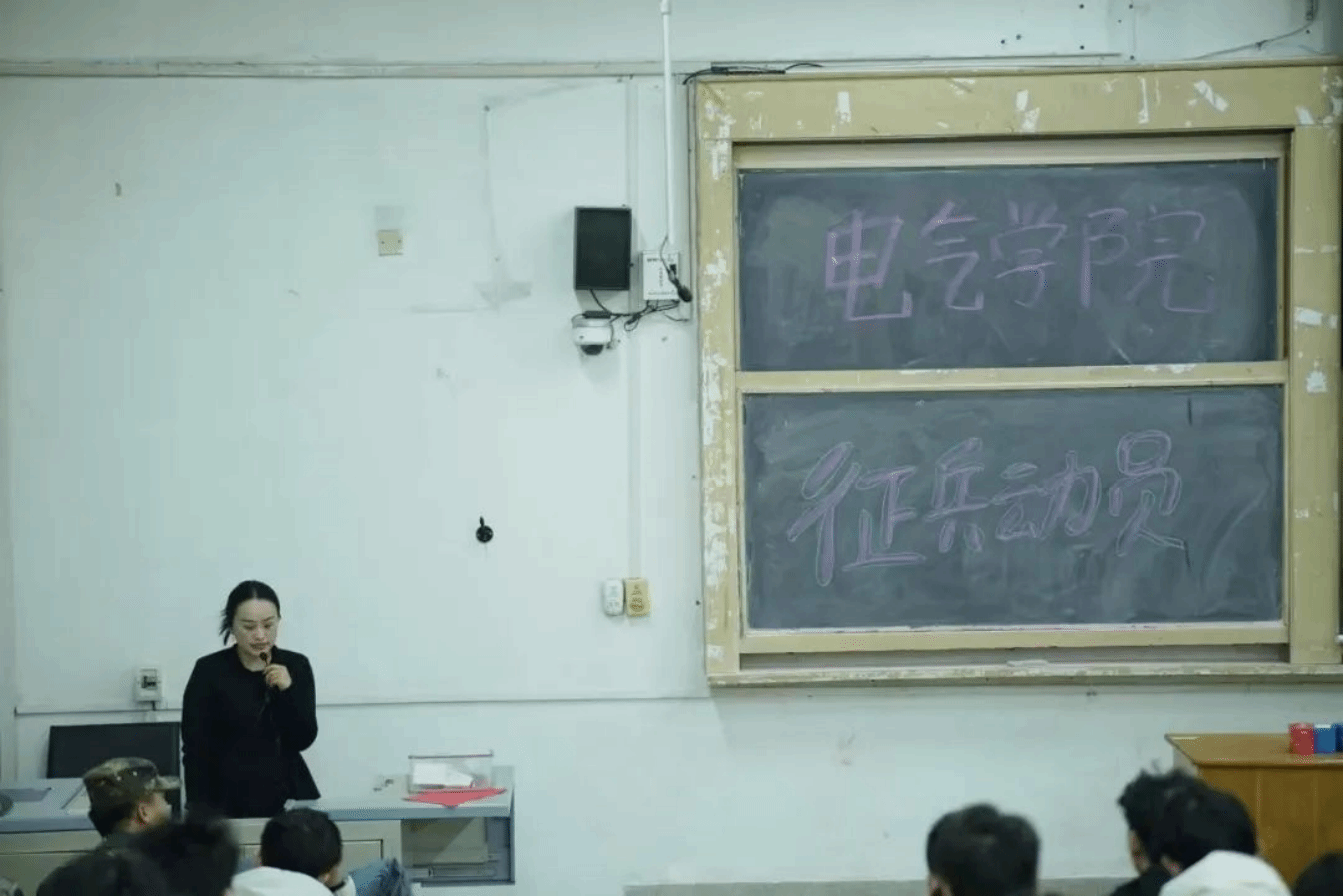 电气学院
征兵动员